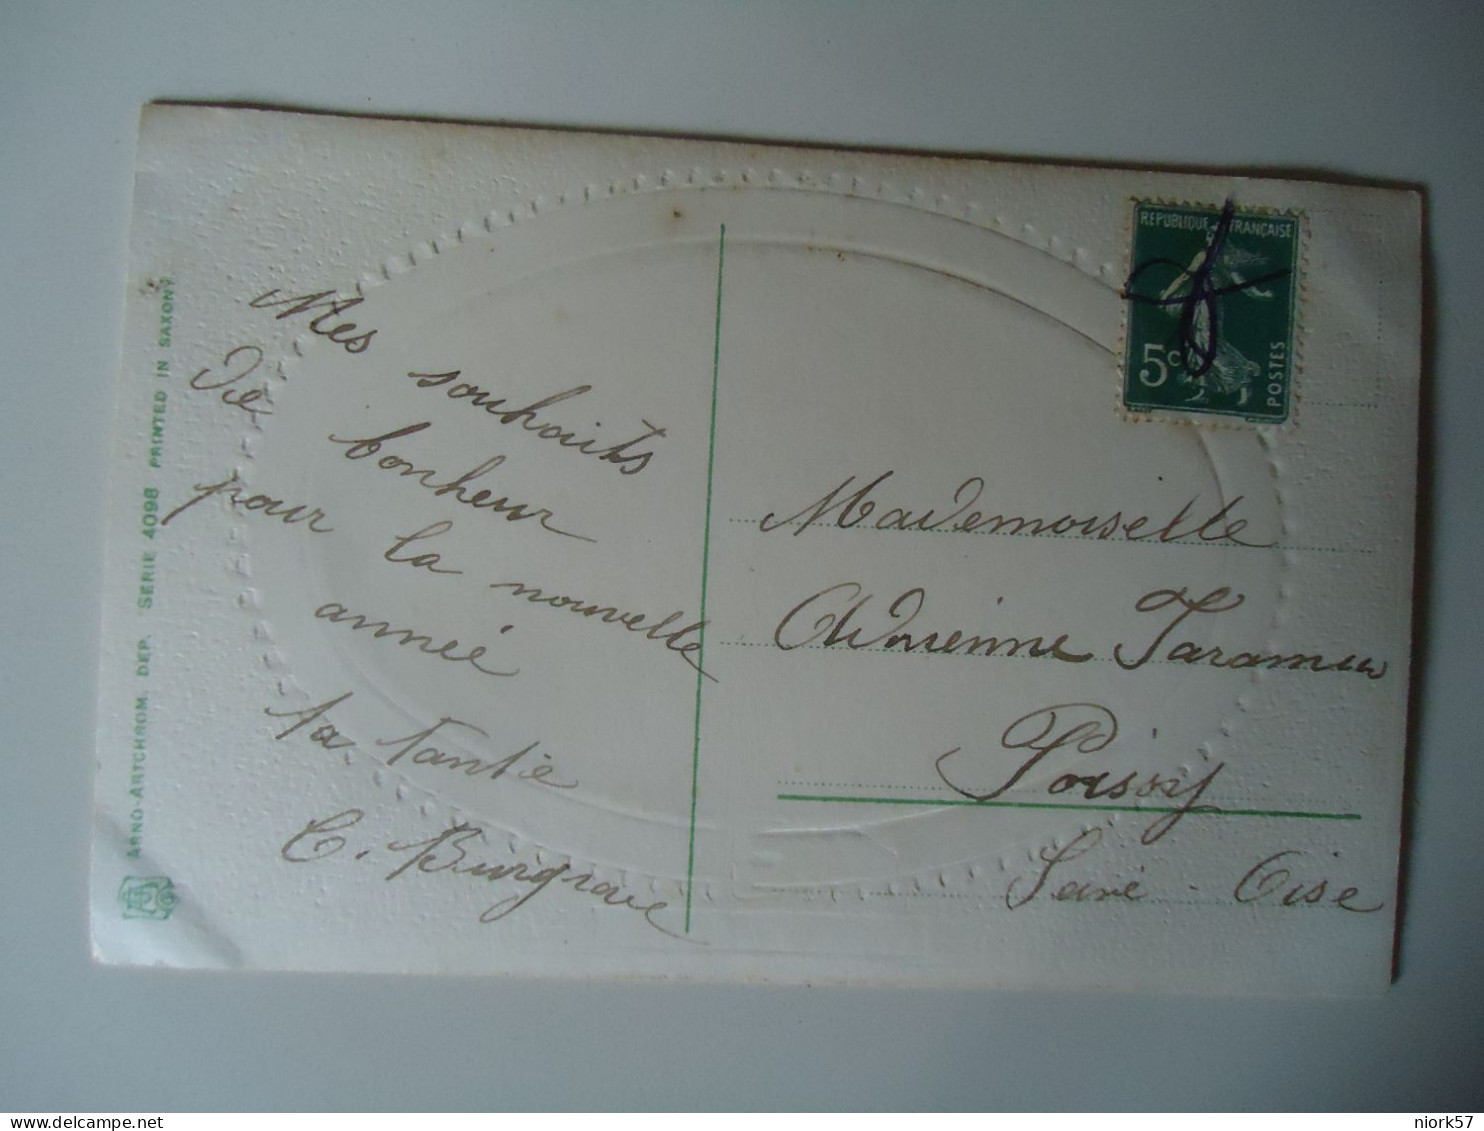 Mes souhaits
de bonheur
pour la nouvelle
année
ta tante
C. Burgrave
Mademoiselle
Adrienne
Poissy
Seine - Oise
REPUBLIQUE FRANÇAISE
5c
POSTES
ARNO-ARTCHROM. DEP. SERIE 4098 PRINTED IN SAXONY
niork57